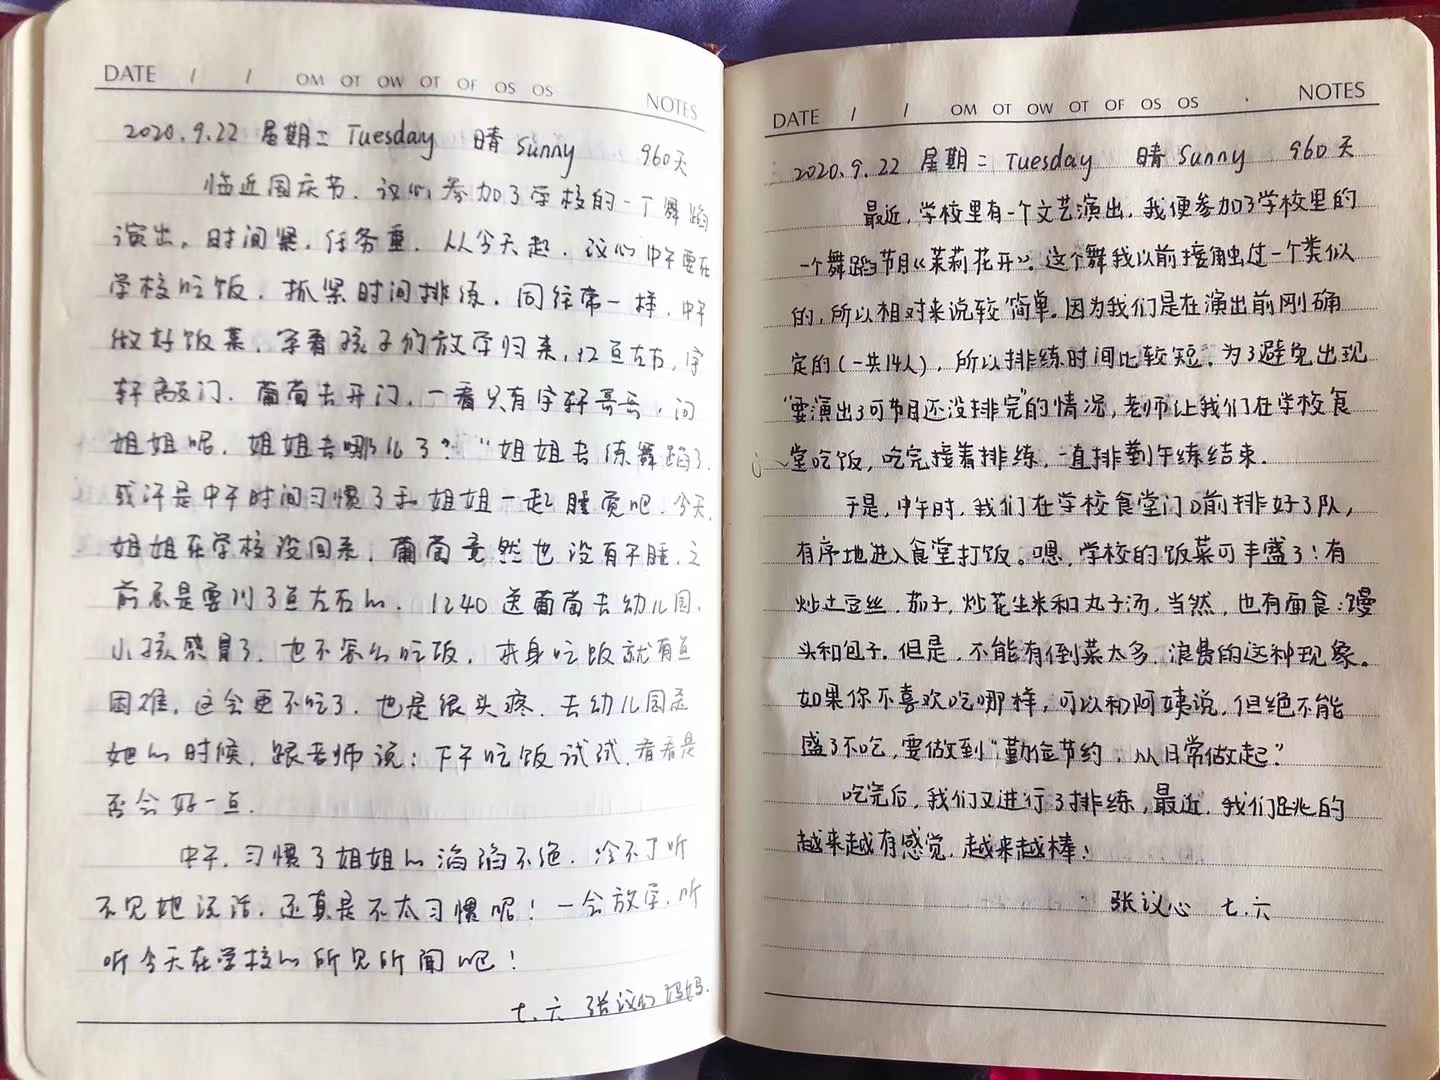 DATE / / OM OT OW OT OF OS OS NOTES
2020.9.22 星期二 Tuesday 晴 Sunny 960天
临近国庆节，议心参加了学校的一个舞蹈
演出，时间紧，任务重，从今天起，议心中午要在
学校吃饭，抓紧时间排练，同往常一样，中午
做好饭菜，等着孩子们放学归来，12点左右，宇
轩敲门，葡萄去开门，一看只有宇轩哥哥，问
姐姐呢，姐姐去哪儿了？"姐姐去练舞蹈了
或许是中午时间习惯了和姐姐一起睡觉吧，今天，
姐姐在学校没回来，葡萄竟然也没有午睡，之
前总是要到了点左右的，1240送葡萄去幼儿园，
小孩感冒了，也不怎么吃饭，本身吃饭就有点
困难，这会更不吃了，也是很头疼，去幼儿园送
她的时候，跟老师说：下午吃饭试试，看看是
否会好一点.
中午，习惯了姐姐的滔滔不绝，冷不丁听
不见她说话，还真是不太习惯呢！一会放学，听
听今天在学校的所见所闻吧！
七.六 张议心妈妈.
DATE / / OM OT OW OT OF OS OS NOTES
2020.9.22 星期二 Tuesday 晴 Sunny 960天
最近，学校里有一个文艺演出，我便参加了学校里的
一个舞蹈节目《茉莉花开》。这个舞我以前接触过一个类似
的，所以相对来说较简单。因为我们是在演出前刚确
定的（一共14人），所以排练时间比较短。为了避免出现
"要演出了可节目还没排完"的情况，老师让我们在学校食
堂吃饭，吃完接着排练，一直排到午练结束.
于是，中午时，我们在学校食堂门口前排好了队，
有序地进入食堂打饭。嗯，学校的饭菜可丰盛了！有
炒土豆丝，茄子，炒花生米和丸子汤，当然，也有面食：馒
头和包子。但是，不能有倒菜太多，浪费的这种现象。
如果你不喜欢吃哪样，可以和阿姨说，但绝不能
盛了不吃，要做到"勤俭节约，从日常做起"
吃完后，我们又进行了排练，最近，我们跳的
越来越有感觉，越来越棒！
张议心 七.六